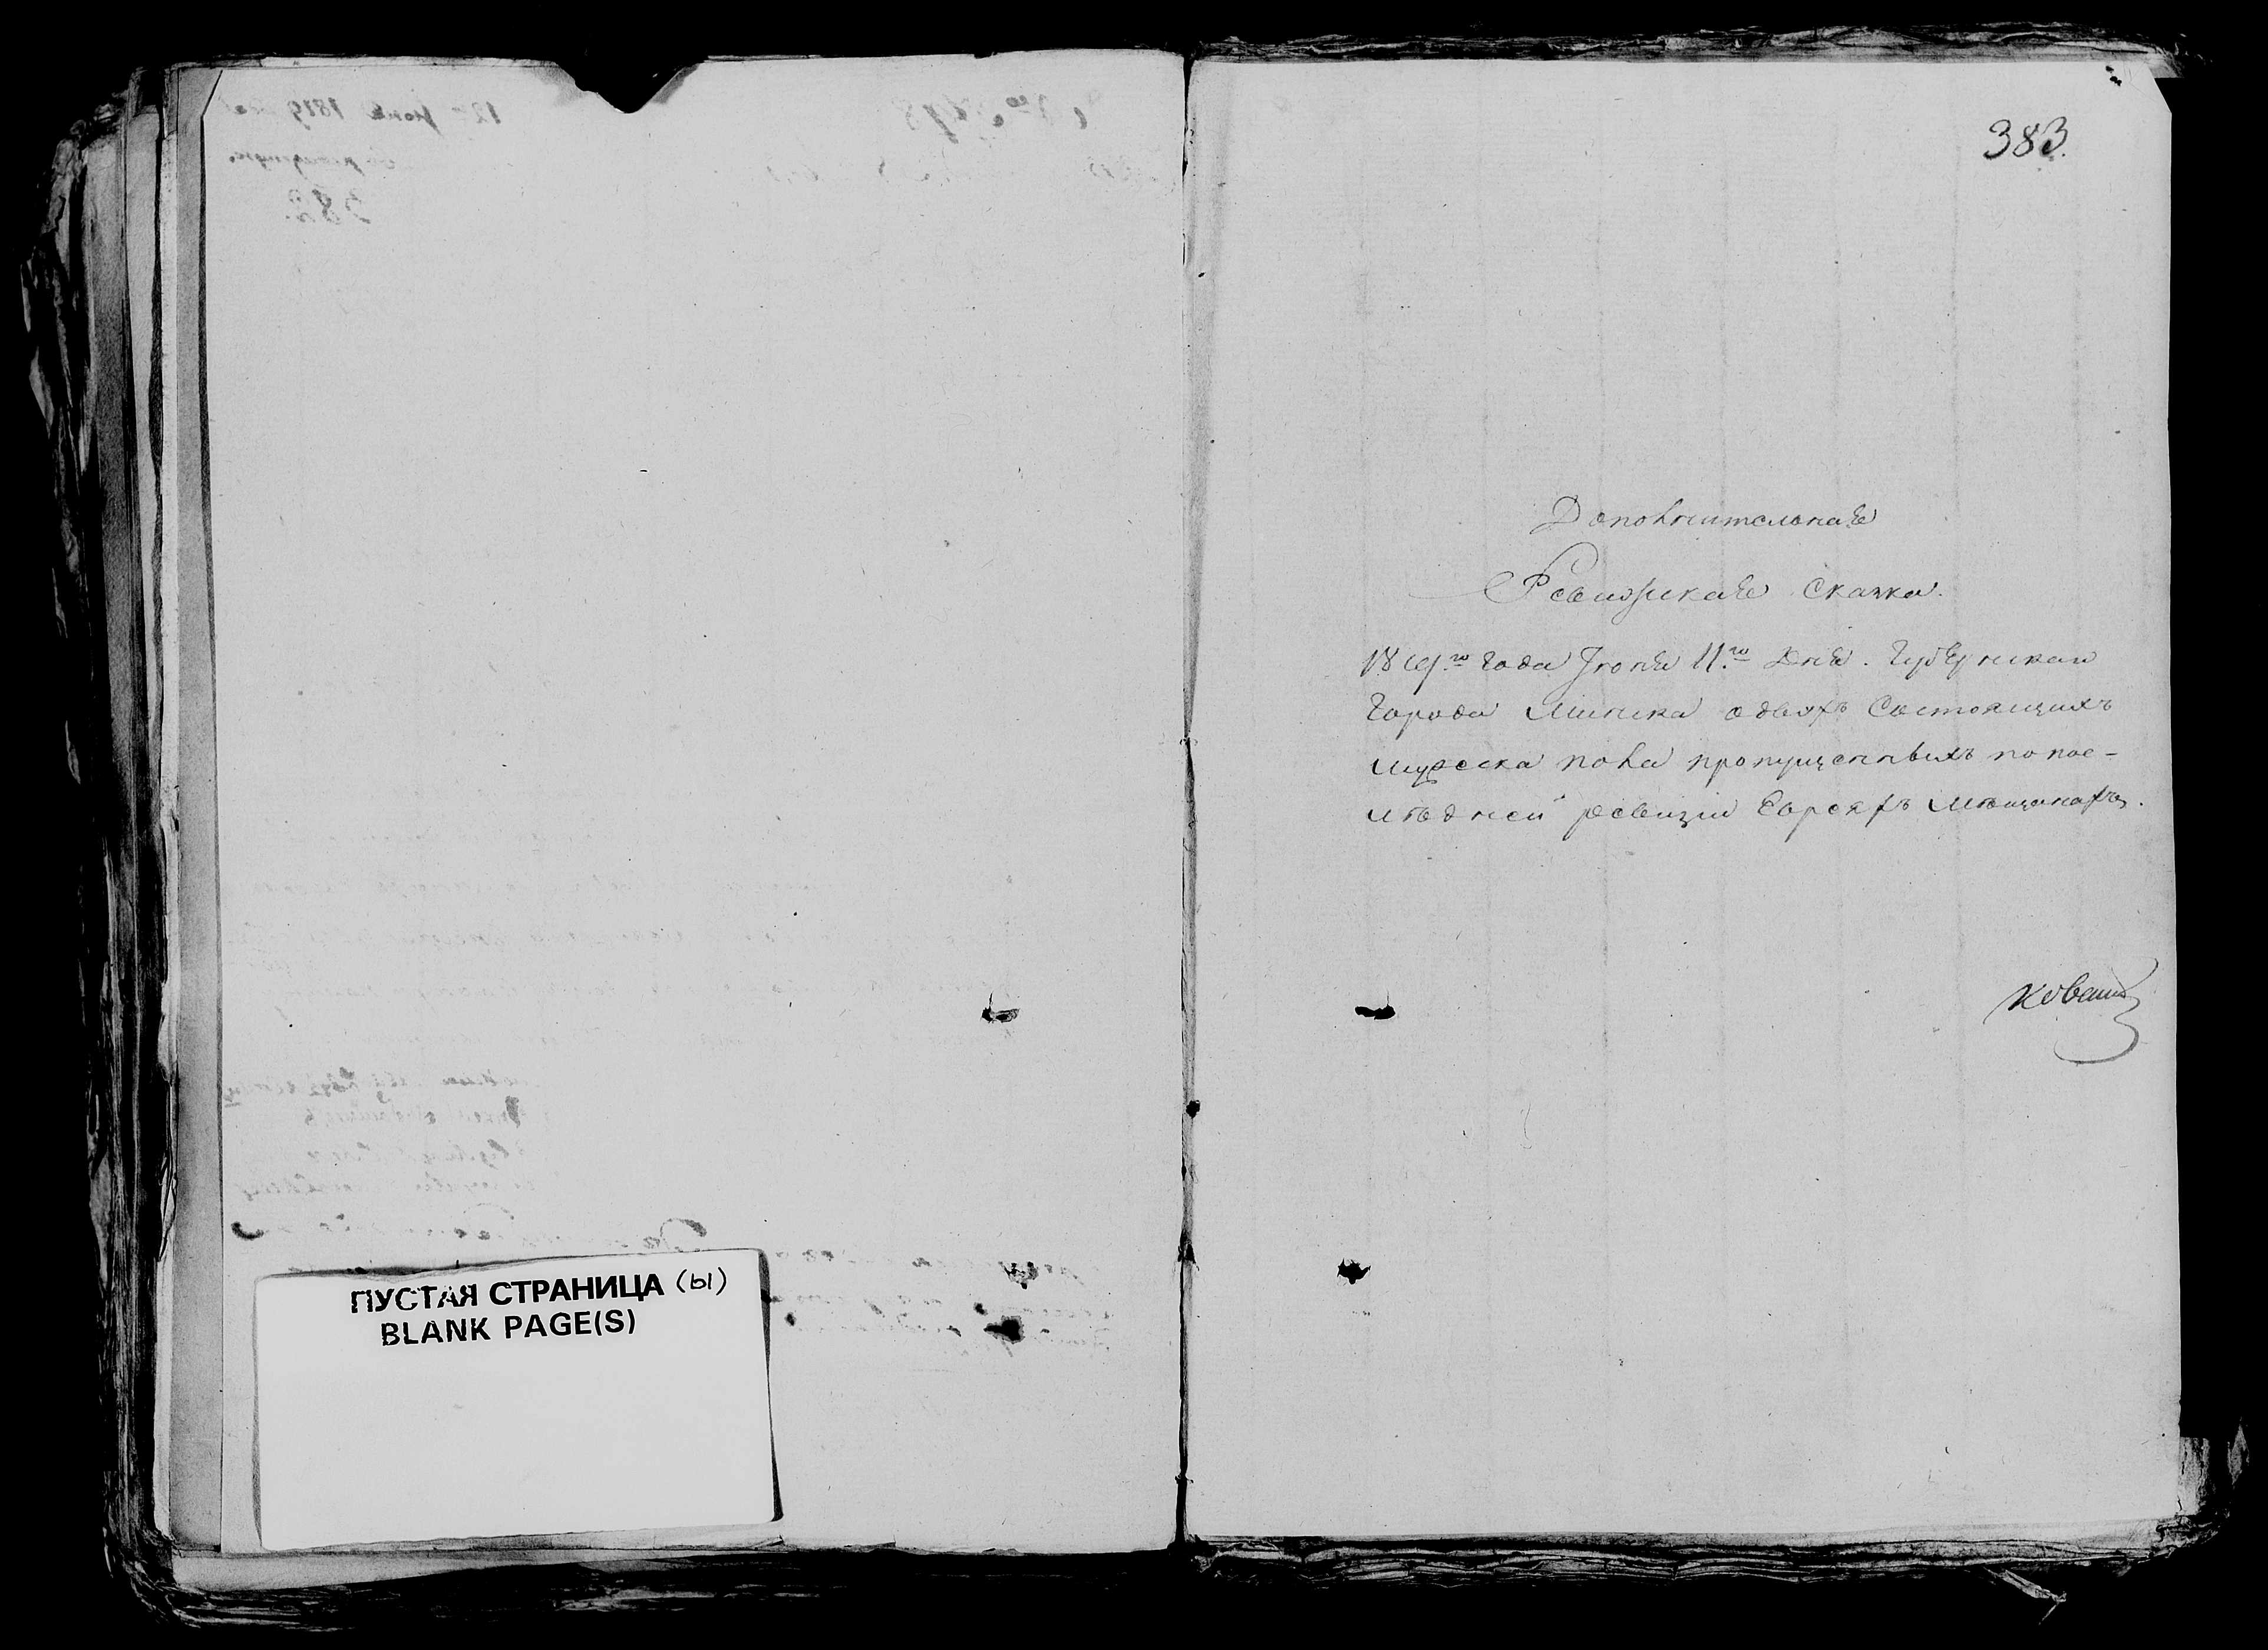 383.
Дополнительная
Ревижская Сказка.
1819го года Іюня 11го Дня. Губернскаго
Города Минска о двухъ Состоящихъ
мужеска пола пропущенныхъ по пос-
лѣдней ревизіи Евреяхъ мѣщанахъ.
ПУСТАЯ СТРАНИЦА (Ы)
BLANK PAGE(S)